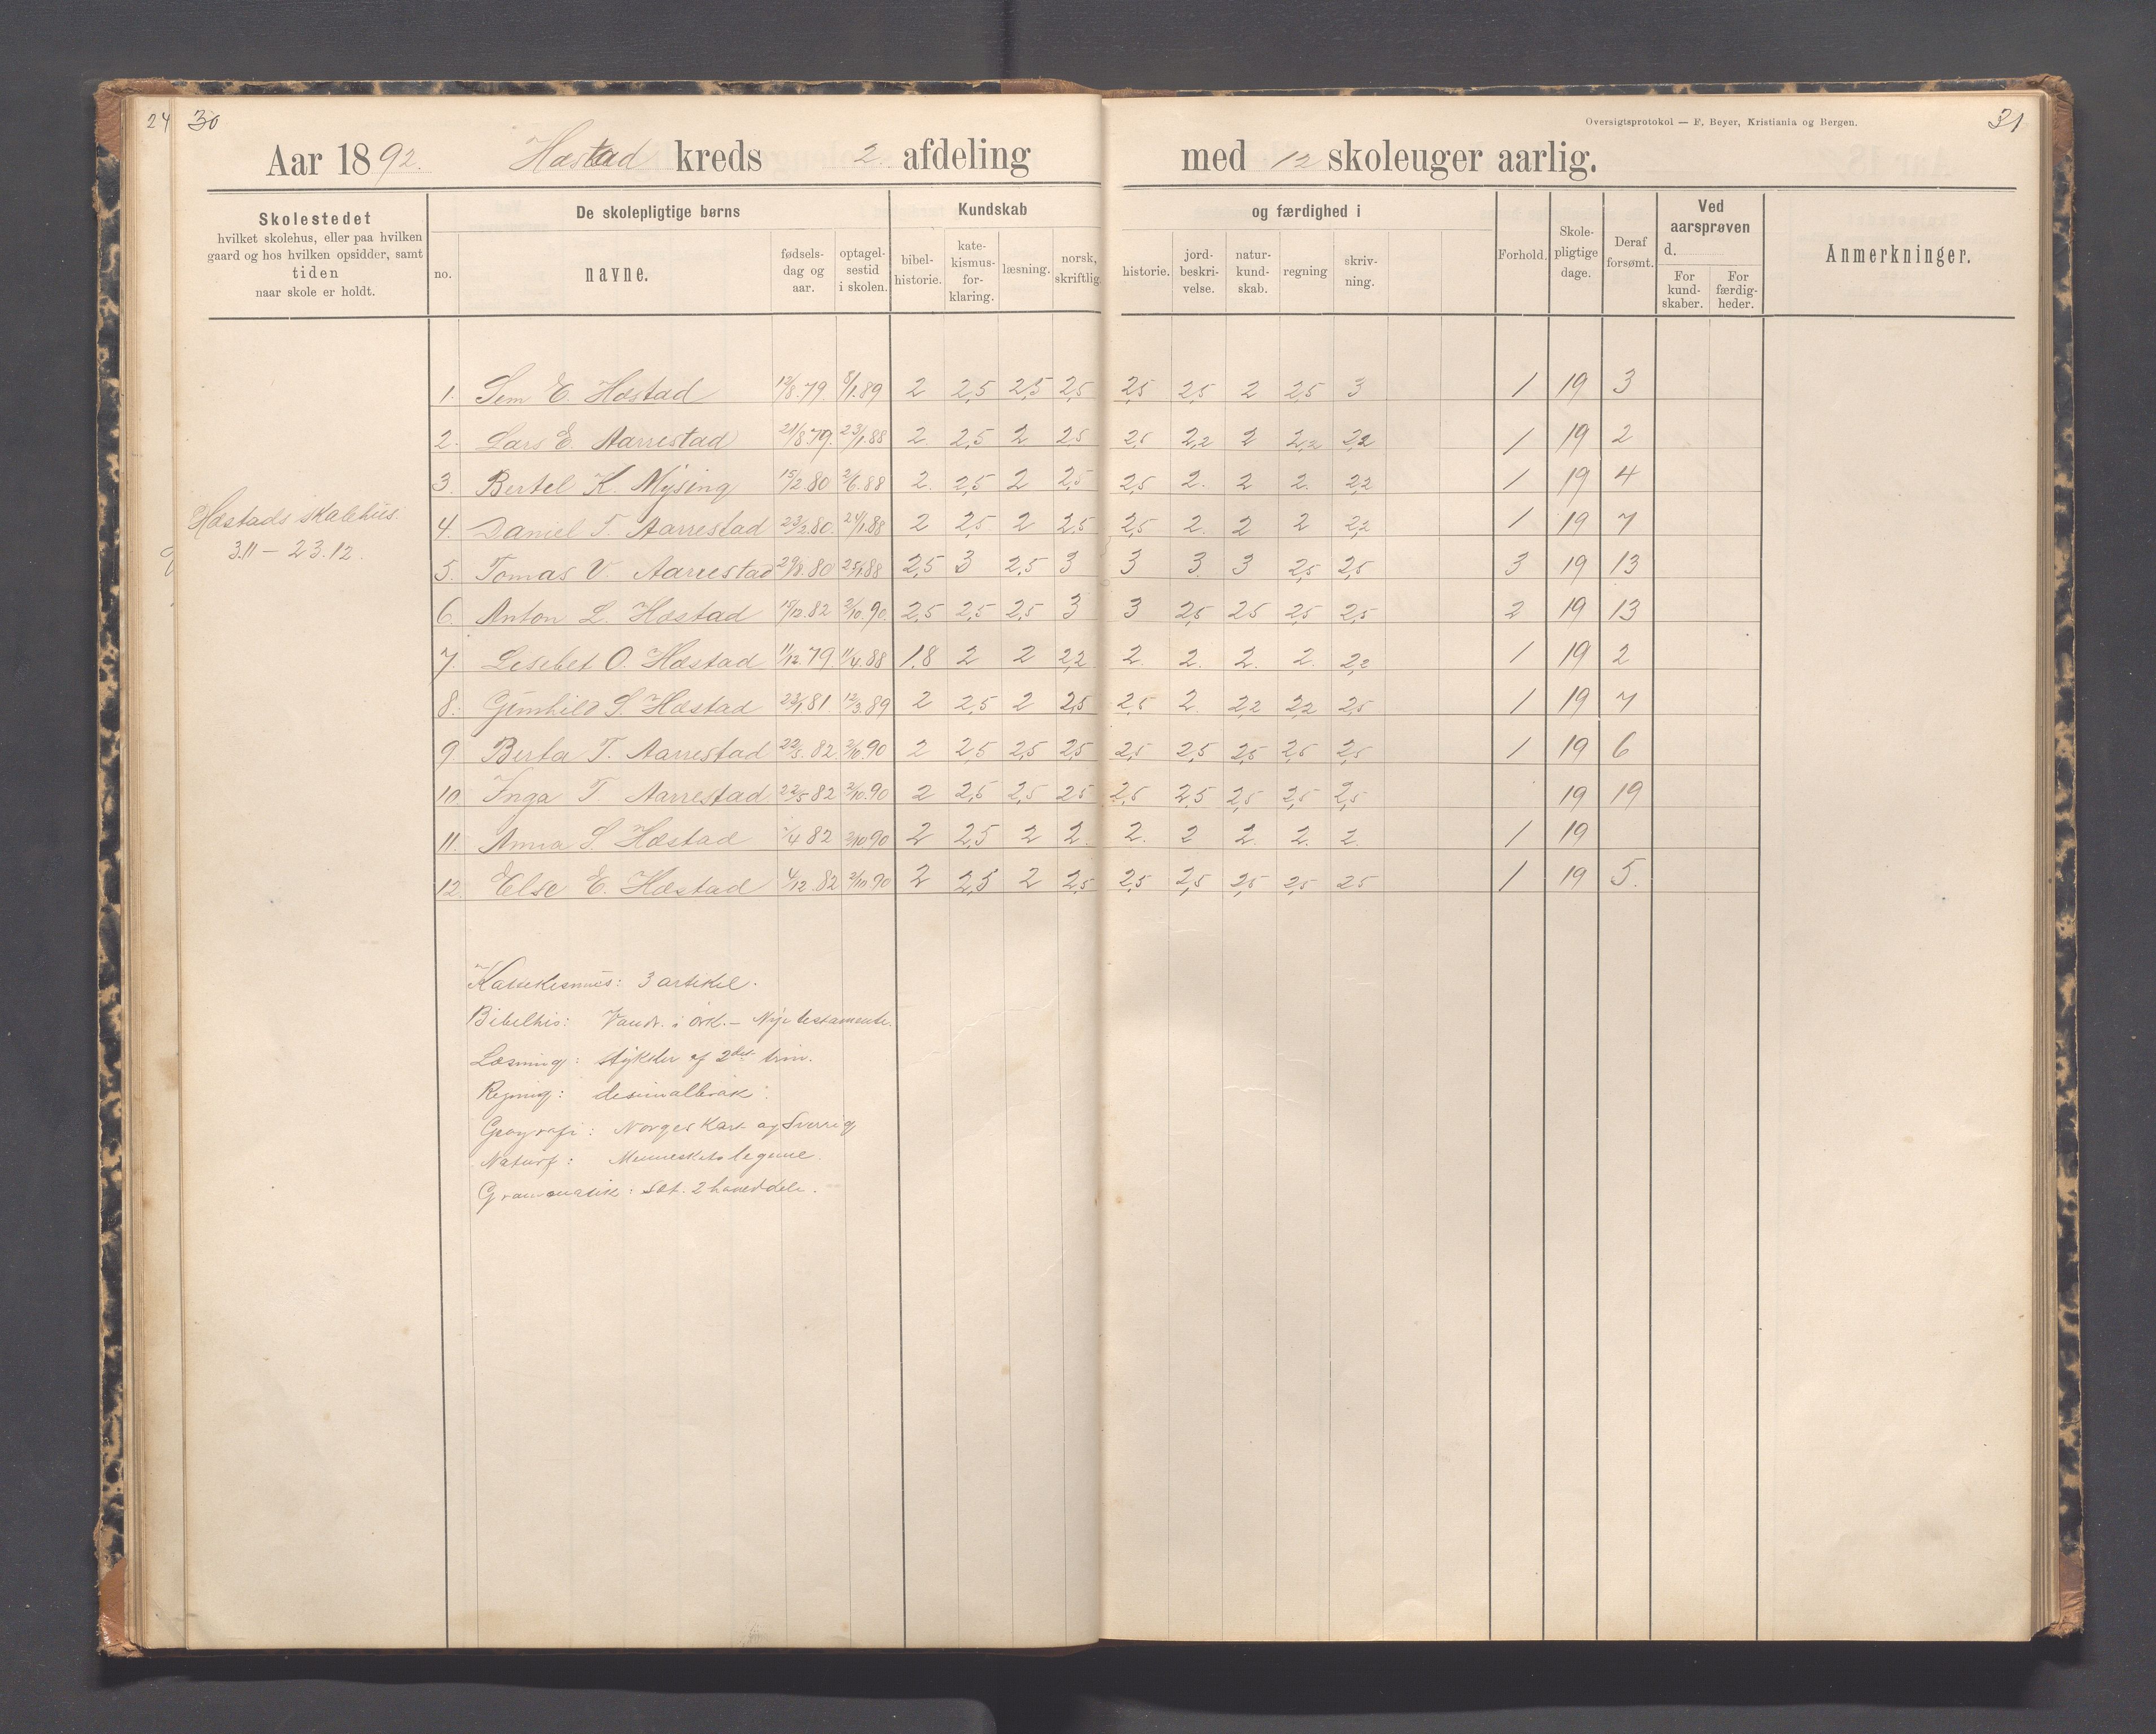 24 30
Oversigtsprotokol — F. Beyer, Kristiania og Bergen.
31
Aar 1892. Hæstad kreds 2. afdeling med 12 skoleuger aarlig.
Skolestedet
hvilket skolehus, eller paa hvilken
gaard og hos hvilken opsidder, samt
tiden
naar skole er holdt.
De skolepligtige børns
no. navne. fødsels-dag og aar. optagel-sestid i skolen.
Kundskab og færdighed i
bibel-historie. kate-kismus-for-klaring. læsning. norsk, skriftlig. historie. jord-beskri-velse. natur-kund-skab. regning skriv-ning.
Forhold. Skole-pligtige dage. Deraf forsømt.
Ved aarsprøven
d.
For kund-skaber. For færdig-heder.
Anmerkninger.
1. Sem E. Hæstad 12/8.79. 8/1.89 2 2,5 2,5 2,5 2,5 2,5 2 2,5 3 1 19 3
2. Lars E. Aarrestad 21/8.79. 23/1.88 2. 2,5 2 2,5 2,5 2,2 2 2,2 2,2 1 19 2
3. Bertel K. Mysing 15/2.80 2/6.88 2. 2,5 2 2,5 2,5 2. 2 2. 2,2 1 19 4
Hæstads skolehus.
3.11 — 23.12.
4. Daniel T. Aarrestad 23/2.80. 24/1.88 2 2,5 2 2,5 2,5 2. 2 2 2,2 1 19 7
5. Tomas V. Aarrestad 29/8.80 25/1.88 2,5 3 2,5 3 3 3 3 2,5 2,5 3 19 13
6. Anton L. Hæstad 15/12.82 2/10.90. 2,5 2,5 2,5 3 3 2,5 2,5 2,5 2,5 2 19 13
7. Lisebet O. Hæstad 11/12.79. 11/4.88 1,8 2 2 2,2 2. 2. 2. 2. 2,2 1 19 2
8. Gunhild S. Hæstad 23/1 81. 12/3.89 2 2,5 2 2,5 2,5 2. 2,2 2,2 2,5 1 19 7
9. Berta T. Aarrestad 22/5.82. 2/10.90 2 2,5 2,5 2,5 2,5 2,5 2,5 2,5 2,5 1 19 6
10. Inga T. Aarrestad 22/5 82 2/10.90 2 2,5 2,5 2,5 2,5 2,5 2,5 2,5 2,5 19 19
11. Anna S. Hæstad 7/4 82 2/10 90 2 2,5 2 2. 2. 2 2. 2. 2. 1 19
12. Else E. Hæstad 4/12.82 2/10.90 2 2,5 2 2,5 2,5 2,5 2,5 2,5 2,5 1 19 5.
Kattekismus: 3 artikel.
Bibelhis: Vandr. i ørk. — Nye testamente.
Læsning: stykker af 2det trin.
Regning: desimalbrøk.
Geografi: Norges kart og Sverrig
Naturf: Menneskets legeme.
Gramatik: Sæt. 2 hoveddele.